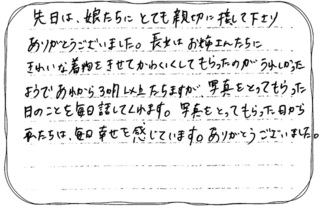 先日は、娘たちにとても親切に接して下さり
ありがとうございました。長女はお姉さんたちに
きれいな着物をきせてかわいくしてもらったのがうれしかった
ようであれから3ヶ月以上たちますが、写真をとってもらった
日のことを毎日話してくれます。写真をとってもらった日から
私たちは、毎日幸せを感じています。ありがとうございました。